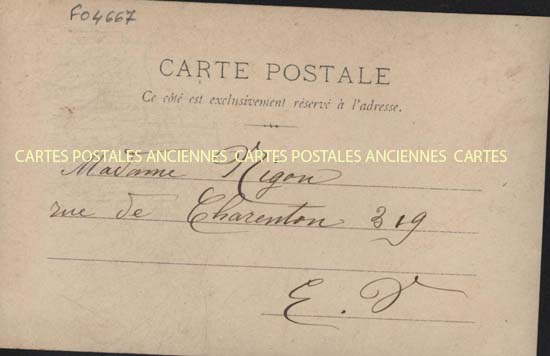 FO4667
CARTE POSTALE
Ce côté est exclusivement réservé à l'adresse.
CARTES POSTALES ANCIENNES CARTES POSTALES ANCIENNES CARTES
Madame
rue de Charenton 319
E. V